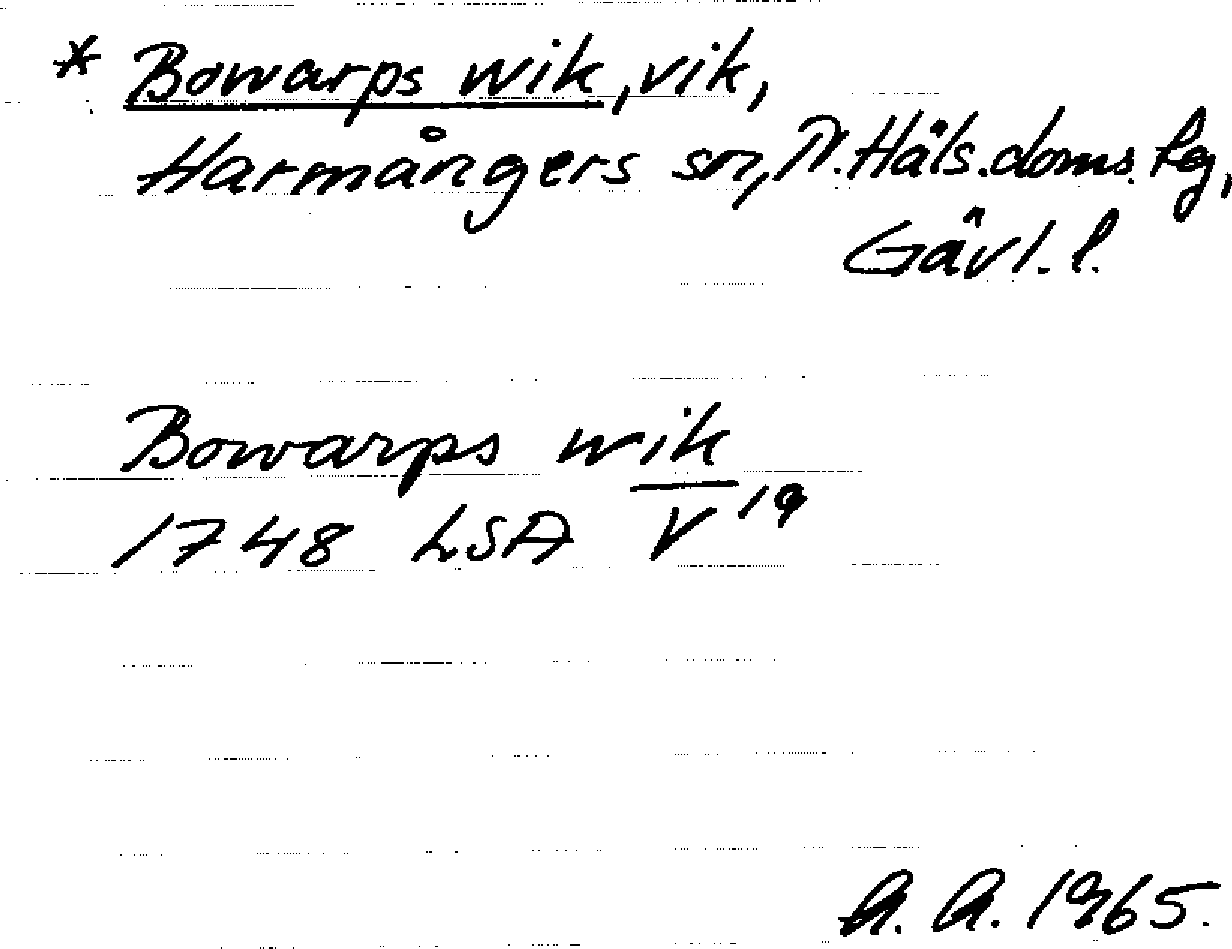 * Bowarps wik, vik,
Harmångers sn, N. Häls. doms.
Gävl. l.
Bowarps wik
1748 LSA V 19
A. A. 1965.